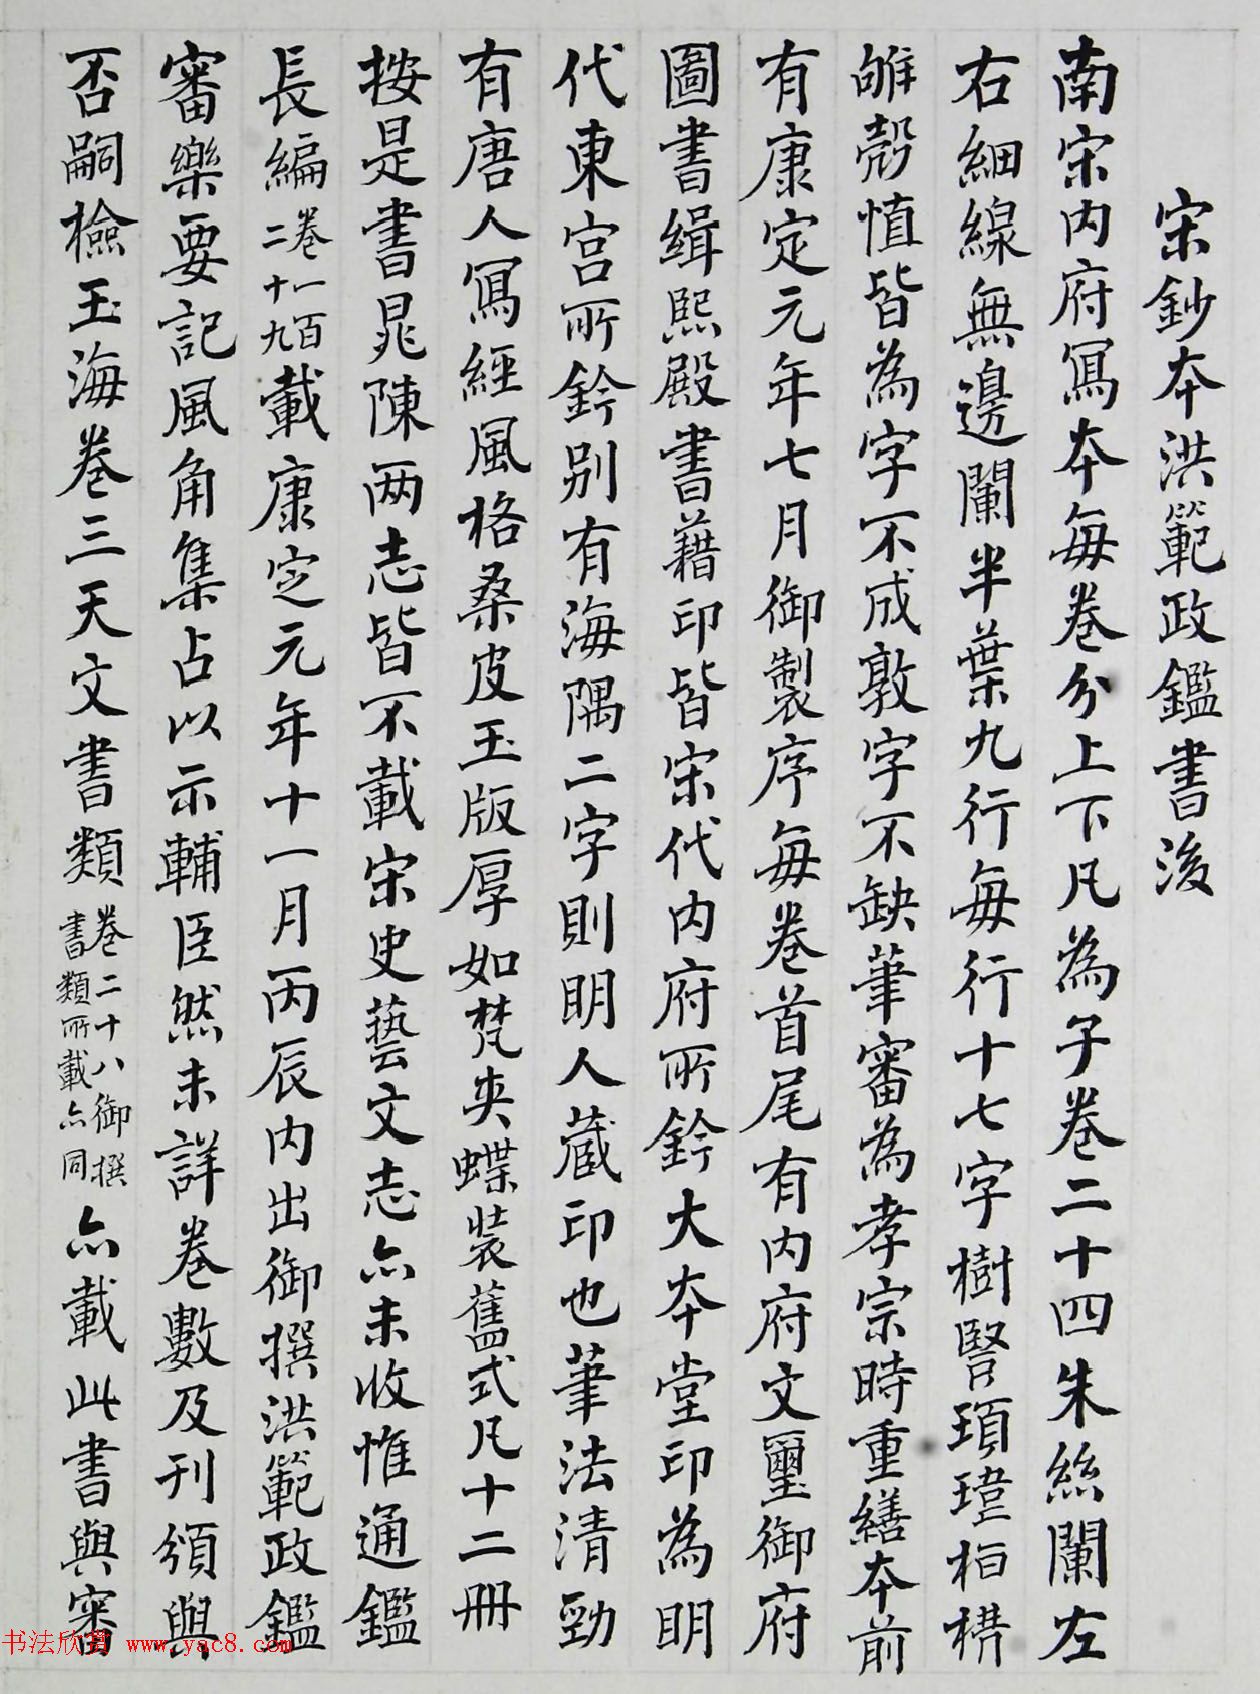 宋鈔本洪範政鑑書後
南宋内府寫本每卷分上下凡為子卷二十四朱絲闌左
右細線無邊闌半葉九行每行十七字樹豎頊瑋桓構
雊愨慎皆為字不成敦字不缺筆審為孝宗時重繕本前
有康定元年七月御製序每卷首尾有内府文璽御府
圖書緝熙殿書籍印皆宋代内府所鈐大本堂印為明
代東宫所鈐别有海隅二字則明人藏印也筆法清勁
有唐人寫經風格桑皮玉版厚如梵夾蝶裝舊式凡十二冊
按是書晁陳两志皆不載宋史藝文志亦未收惟通鑑
長編卷一百二十九載康定元年十一月丙辰内出御撰洪範政鑑
審樂要記風角集占以示輔臣然未詳卷數及刊頒與
否嗣檢玉海卷三天文書類卷二十八御撰書類所載亦同亦載此書與審
书法欣赏 www.yac8.com